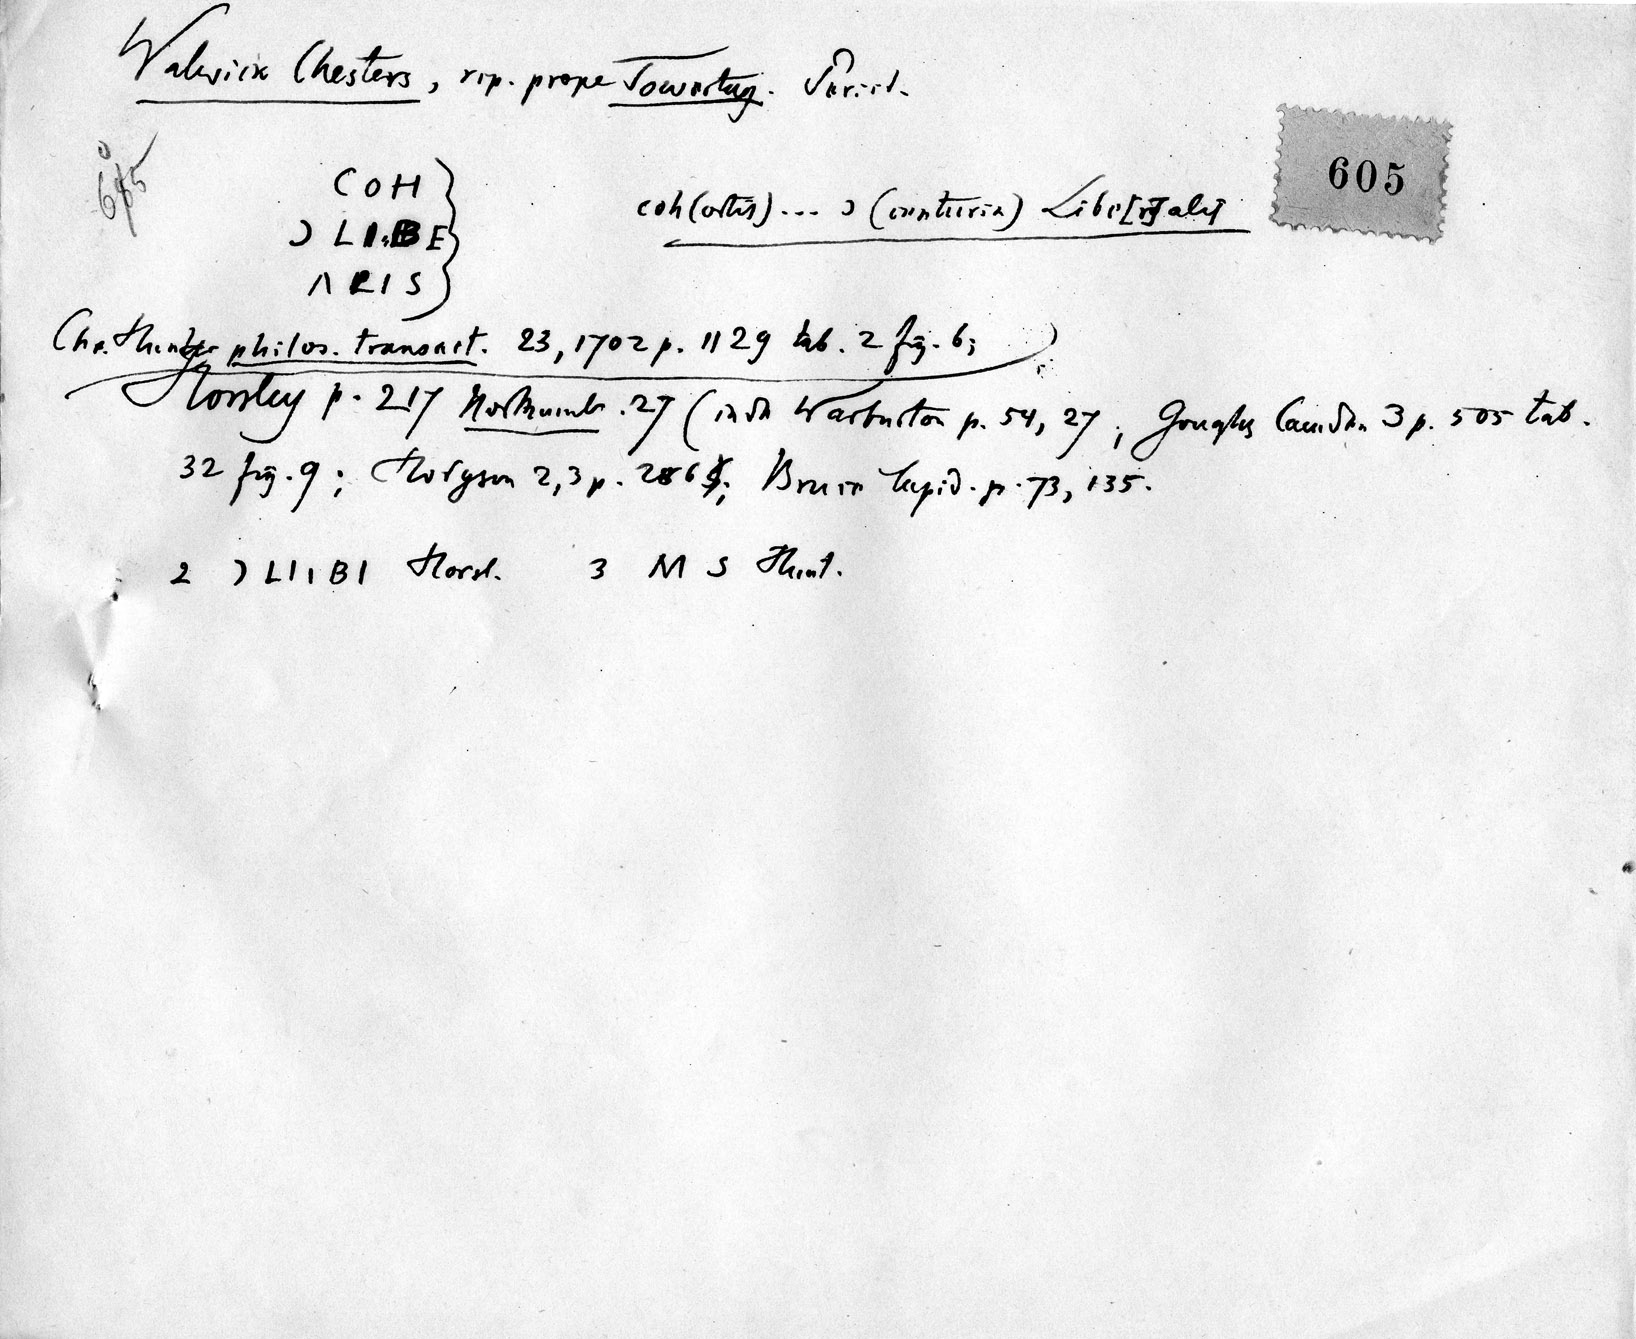 Walwick Chesters, rep. prope Towertay. Periit.
605
605
COH
Ɔ LIBE
ΛRIS
coh(ortis)... Ɔ (centuria) Libe[r]alis
Chr. Hunter philos. transact. 23, 1702 p. 1129 tab. 2 fig. 6;
Horsley p. 217 Northumb. 27 (inde Warburton p. 54, 27; Goughs Camden 3 p. 505 tab.
32 fig. 9; Hodgson 2,3 p. 286; Bruce lapid. p. 73, 135.
2 Ɔ LIIBI Horsl. 3 M S Hunt.